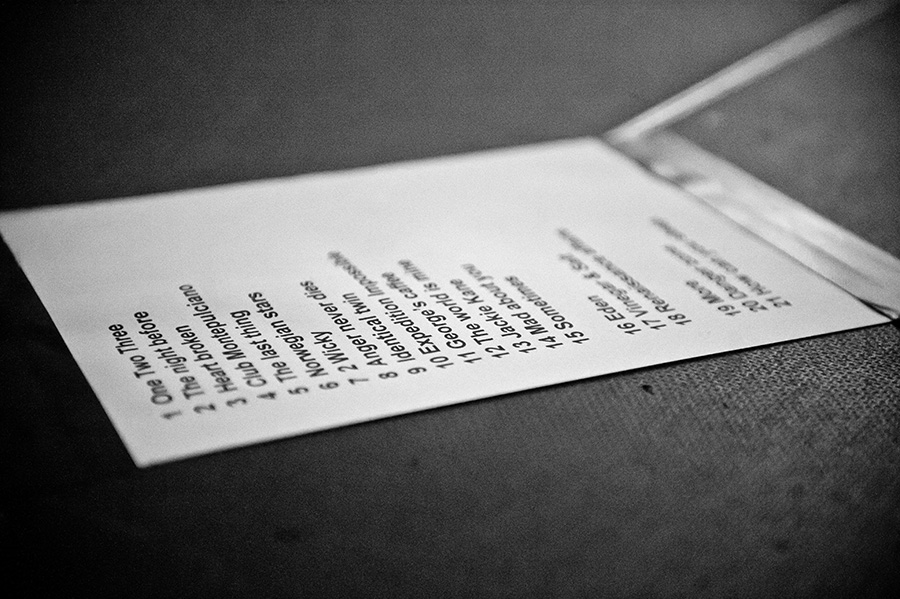 1 One Two Three
2 The night before
3 Heart broken
4 Club Montepulciano
5 The last thing
6 Norwegian stars
7 2 Wicky
8 Anger never dies
9 Identical twin
10 Expedition Impossible
11 George's caffee
12 The world is mine
13 Jackie Kane
14 Mad about you
15 Sometimes
16 Eden
17 Vinegar & Salt
18 Renaissance affair
19 More
20 Danger zone
21 How can you